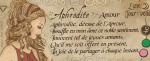 Aphrodite Amour
Aphrodite, déesse de l'Amour,
Souffle en mon âme et notre souffle,
Innocent tel de jeunes amants,
Qu'il me soit offert en présent,
La joie de la partager à chaque instant